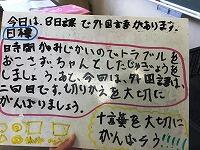 今日は、B日課で外国言があります。
日標
時間がみじかいのでトラブルを
おこさず、ちゃんとしたじゅぎょうを
しましょう。あと、今回は、外国語は、
二回目です。切りかえを大切に
がんばりましょう。
言葉を大切に
がんばろう!!!